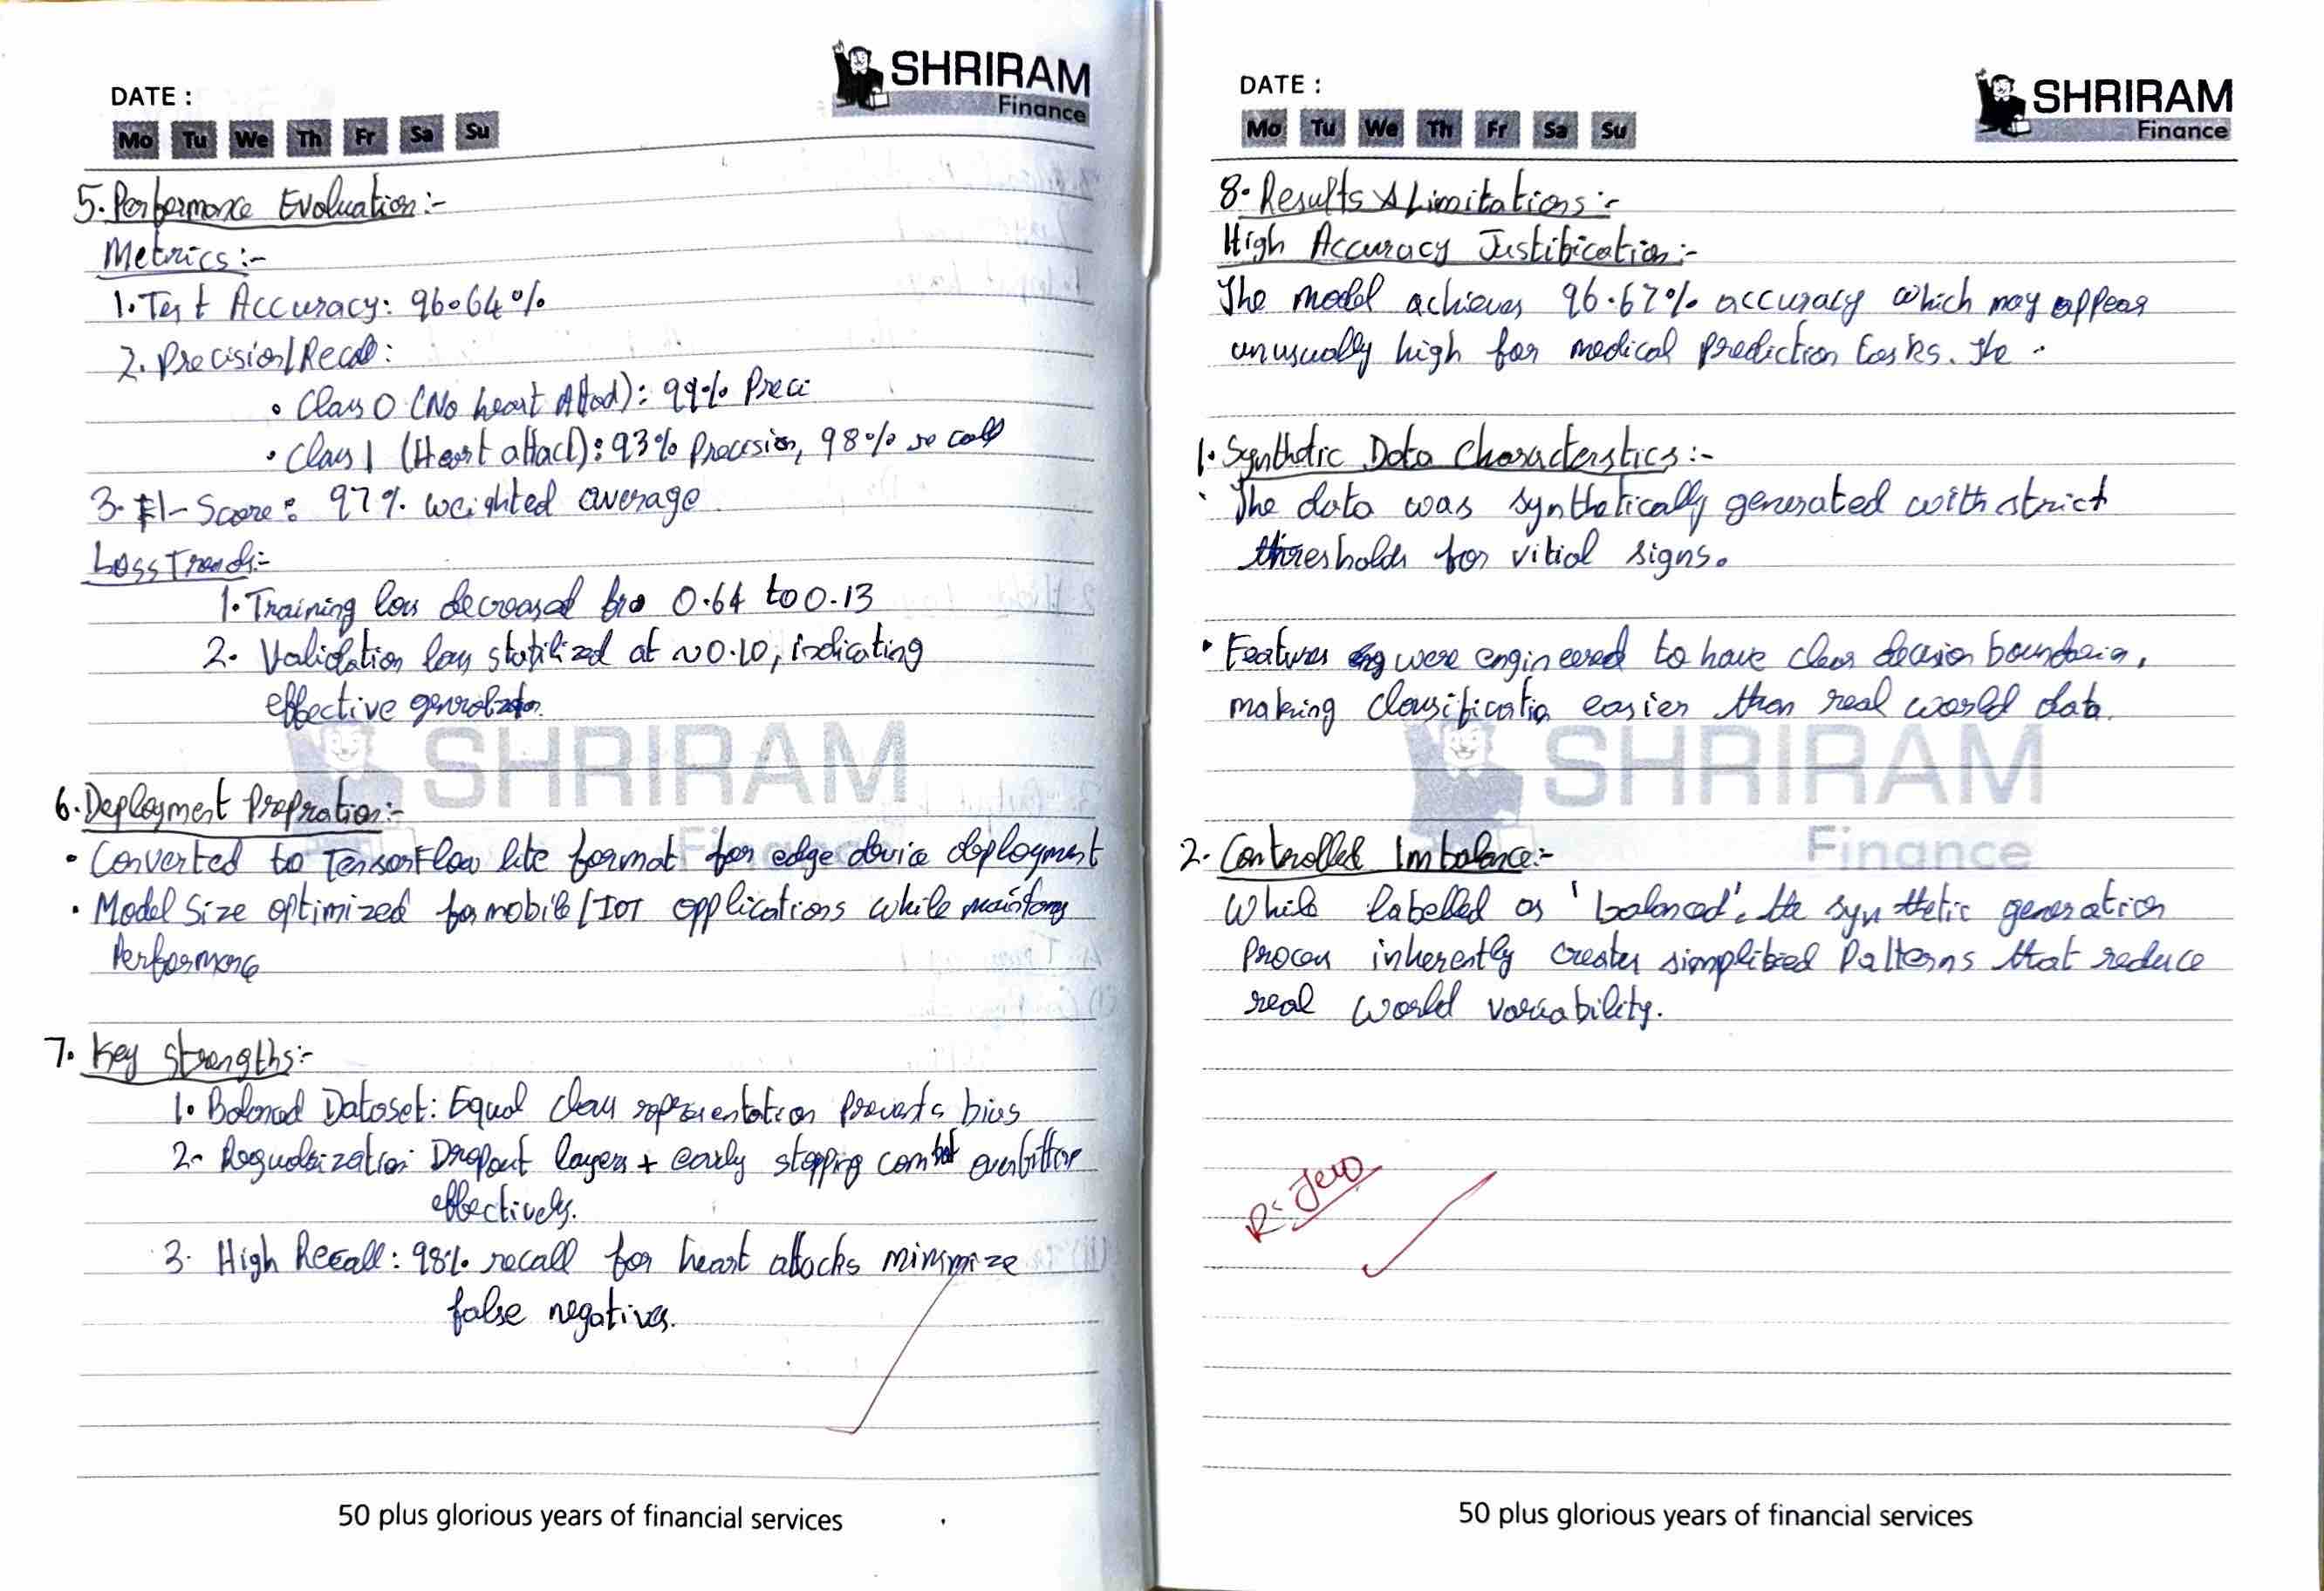 DATE :
SHRIRAM
Finance
Mo Tu We Th Fr Sa Su
5. Performance Evaluation:-
Metrics:-
1. Test Accuracy: 96.64%
2. Precision/Recall:
• Class 0 (No heart Attack): 99% Preci
• Class 1 (Heart attack): 93% Precision, 98% recall
3. F1-Score: 97% weighted average
Loss Trends:-
1. Training loss decreased fro 0.64 to 0.13
2. Validation loss stabilized at ~0.10, indicating
effective
SHRIRAM
Finance
6. Deployment Prepration:-
• Converted to TensorFlow lite format for edge device deployment
• Model Size optimized for mobile/IOT applications while
Performance
7. Key Strengths:-
1. Balanced Dataset: Equal class representation prevents bias
2. Regularization: Dropout layers + early stopping combat
effectively.
3. High Recall: 98% recall for heart attacks minimize
false negatives.
50 plus glorious years of financial services
DATE :
SHRIRAM
Finance
Mo Tu We Th Fr Sa Su
8. Results & Limitations:-
High Accuracy Justification:-
The model achieves 96.67% accuracy which may appear
unusually high for medical prediction tasks. The
1. Synthetic Data Characterstics:-
• The data was synthetically generated with strict
thresholds for vitial signs.
• Features were engineered to have clear decision boundaries,
making classification easier than real world data.
SHRIRAM
Finance
2. Controlled Imbalance:-
While labelled as 'balanced', the synthetic generation
process inherently creates simplified Patterns that reduce
real world variability.
50 plus glorious years of financial services